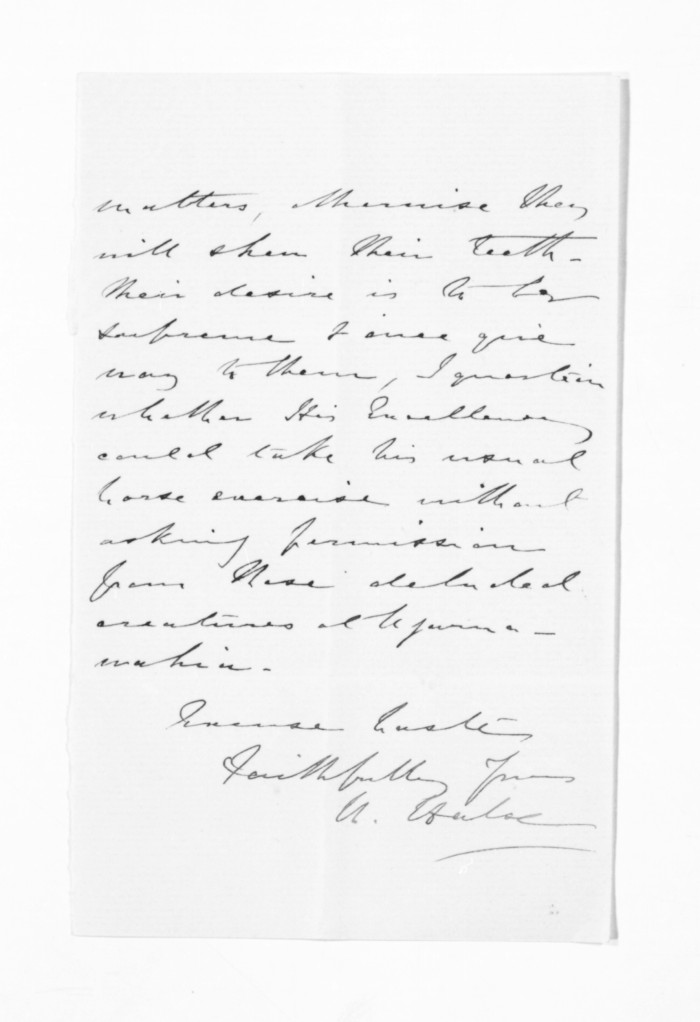 matters, otherwise they
will shew their teeth -
their desire is to be
supreme & once give
way to them, I question
whether His Excellency
could take his usual
horse exercise without
asking permission
from these deluded
creatures at Ngarua-
wahia.
Excuse haste
Faithfully Yours
H. Halse